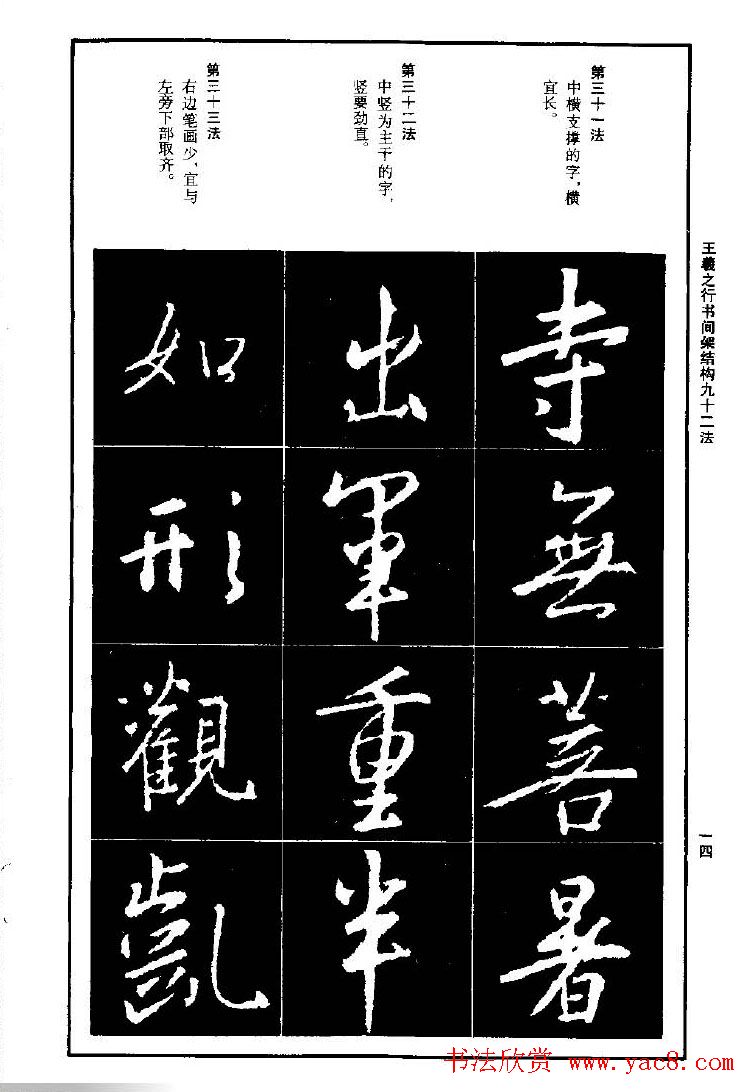 王羲之行书间架结构九十二法
一四
第三十一法
中横支撑的字，横
宜长。
寺無菩暑
第三十二法
中竖为主干的字，
竖要劲直。
出軍重半
第三十三法
右边笔画少，宜与
左旁下部取齐。
如形觀凱
书法欣赏 www.yac8.com